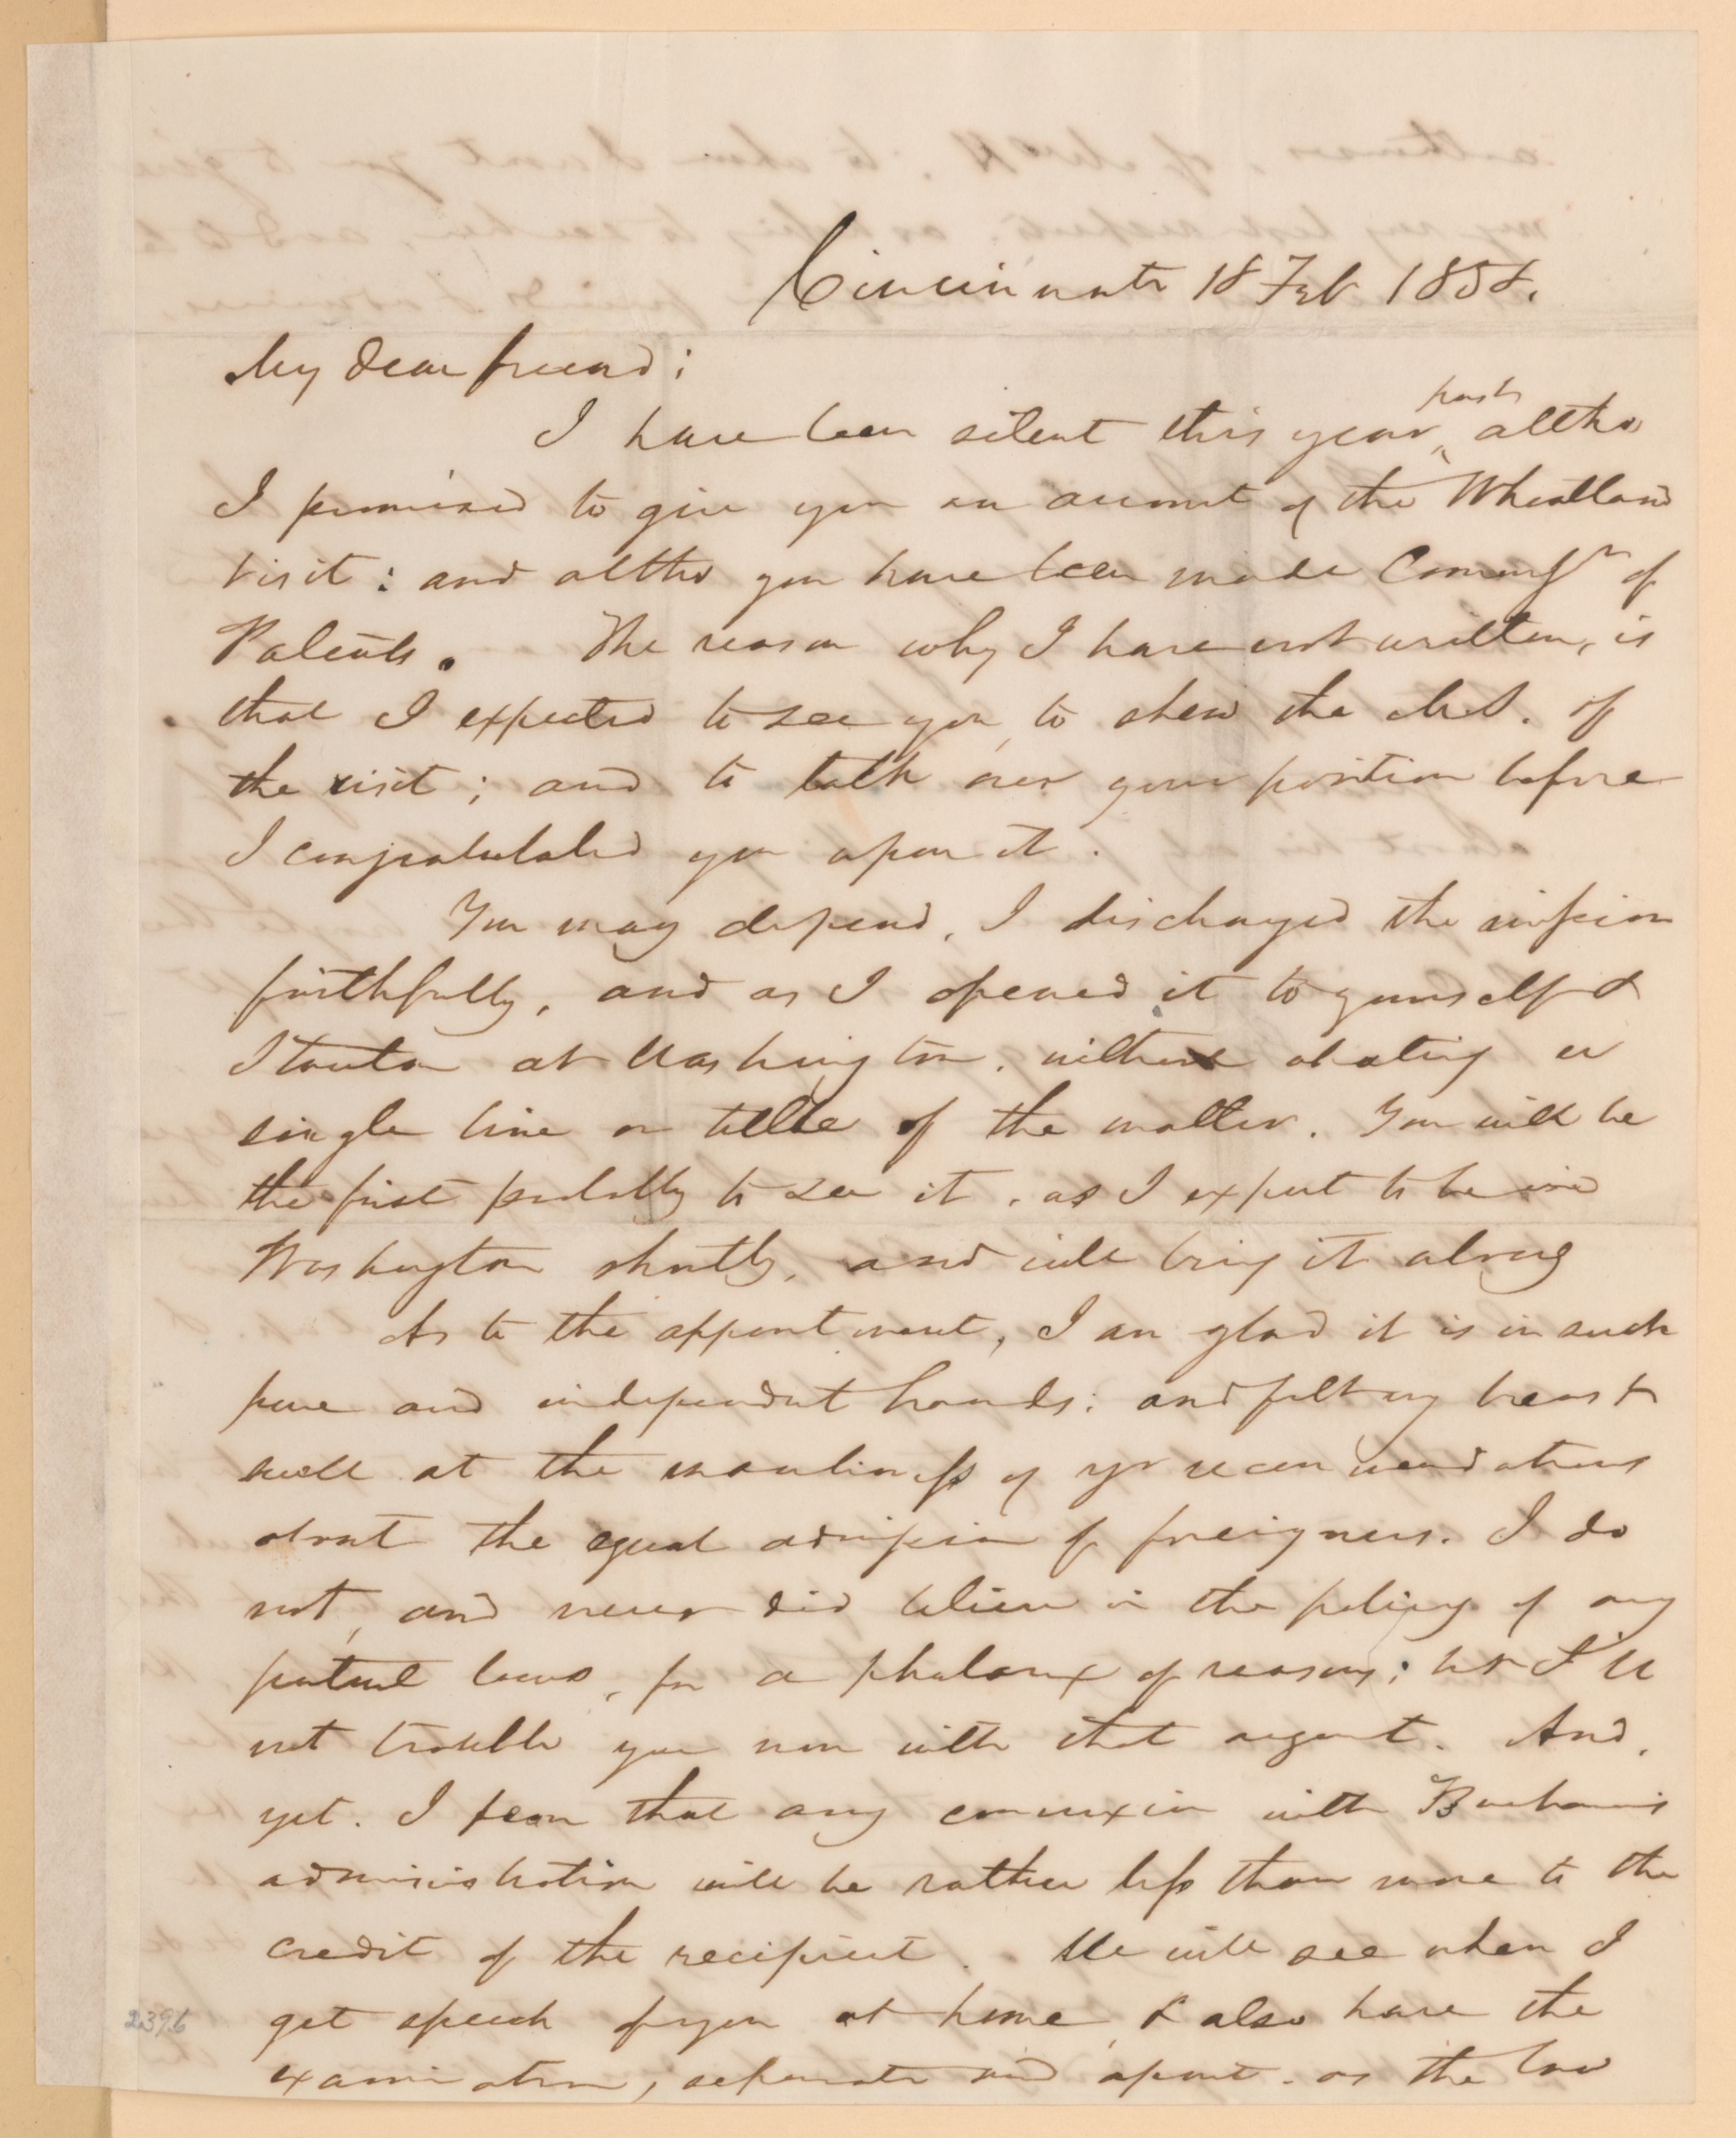 Cincinnati 18 Feb 1858.
My dear friend;
past
I have been silent this year, altho
I promised to give you an account of the Wheatland
visit: and altho you have been made Commissr of
Patents. The reason why I have not written, is
that I expected to see you, to shew the MS. of
the visit; and to talk over your position before
I congratulated you upon it.
You may depend, I discharged the mission
faithfully, and as I opened it to yourself &
Stanton at Washington, without abating a
single line or tittle of the matter. You will be
the first probably to see it, as I expect to be in
Washington shortly, and will bring it along
As to the appointment, I am glad it is in such
pure and independent hands: and felt my breast
swell at the manliness of yr recommendations
about the equal admission of foreigners. I do
not, and never did believe in the policy of any
patent laws, for a phalanx of reasons; but I'll
not trouble you now with that argent. And,
yet. I fear that any connexion with Buchanans
administration will be rather less than more to the
credit of the recipient. We will see when I
get speech of you at home, & also have the
examination, separate and apart. as the law
2396